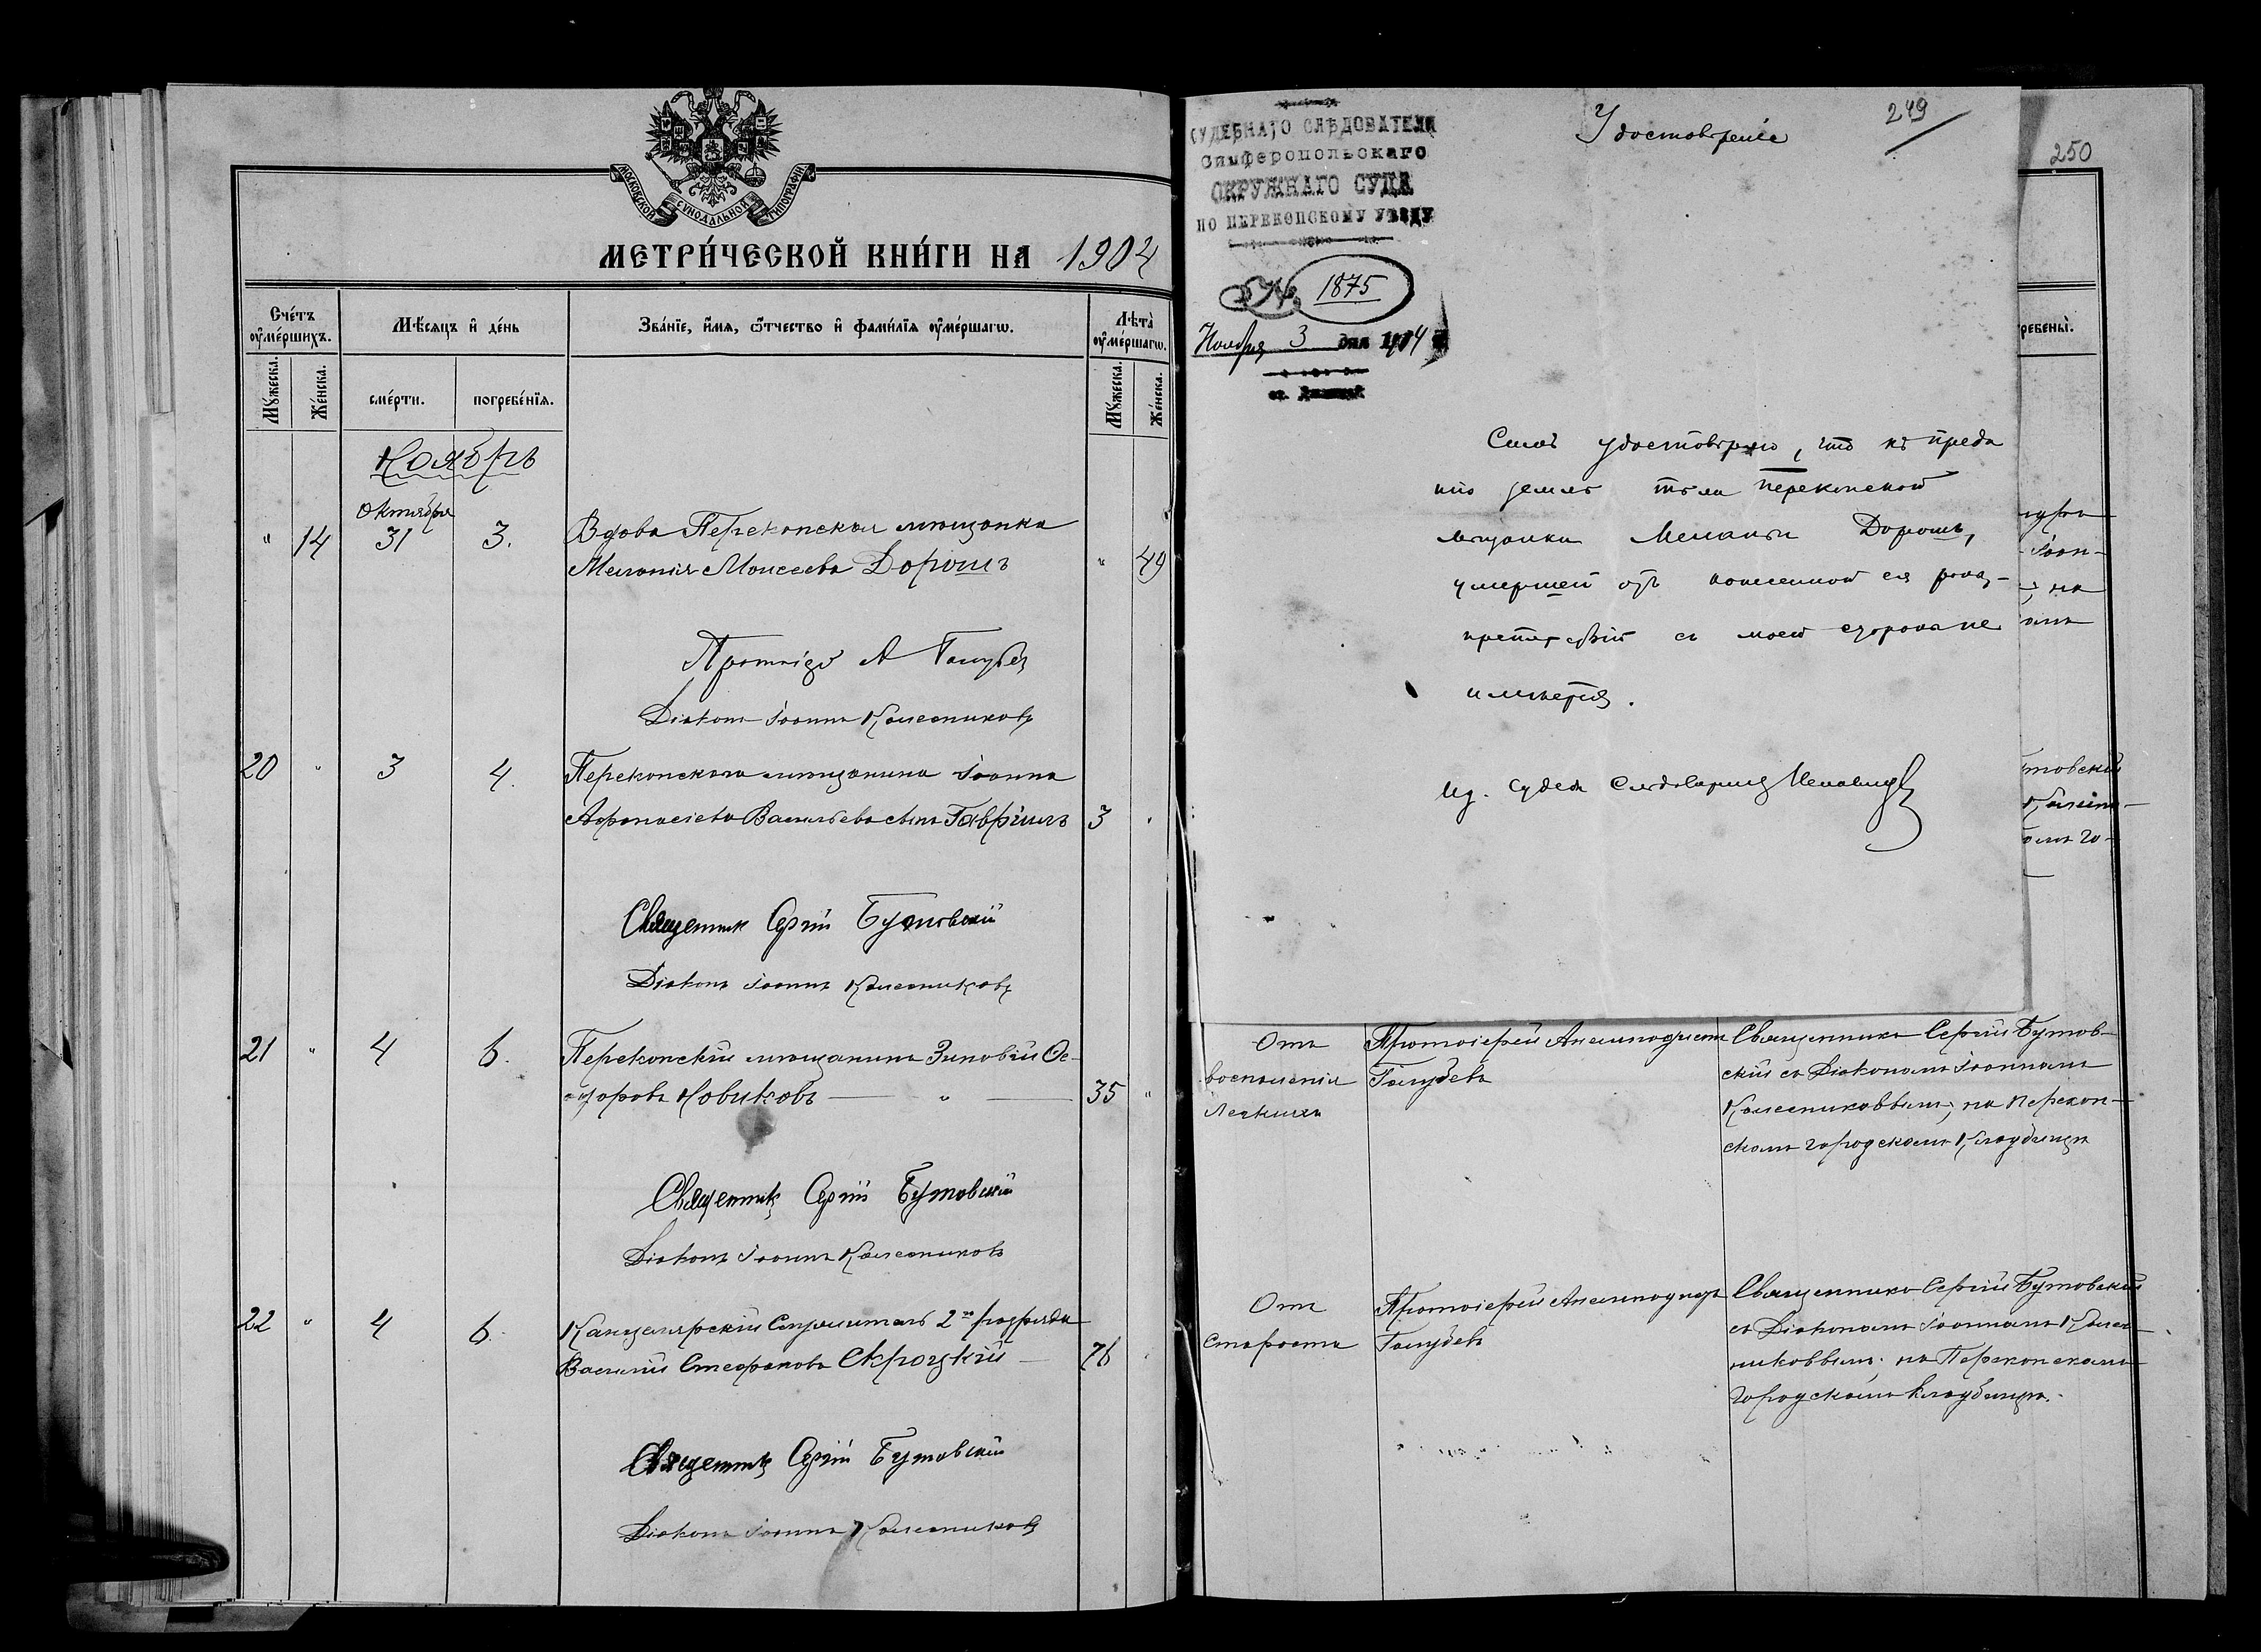 МОСКОВСКОЙ СѴНОДАЛЬНОЙ ТИПОГРАФІИ
МЕТРИ́ЧЕСКОЙ КНИ́ГИ НА 1904
Сче́тъ оу҆ме́ршихъ.
Мѣ́сяцъ и҆ де́нь
Зва́нїе, и҆́мѧ, ѻ҆́тчество и҆ фами́лїѧ оу҆ме́ршагѡ.
Лѣта̀ оу҆ме́ршагѡ.
Мꙋ́жеска.
Же́нска.
сме́рти.
погребе́нїѧ.
Мꙋ́жеска.
Же́нска.
Ноябрь
Октября
" 14 31 3. Вдова Перекопская мѣщанка
Меланія Моисеева Дорошъ " 49
Протоіер А Голубев
Діаконъ Іоаннъ Колесниковъ
20 " 3 4. Перекопскаго мѣщанина Іоанна
Афанасіева Васильева сынъ Гавріилъ 3 "
Священник Сергій Бутовскій
Діаконъ Іоаннъ Колесниковъ
21 " 4 6. Перекопскій мѣщанинъ Зиновій Ѳе-
одоровъ Новиковъ — " — 35 "
Священникъ Сергій Бутовскій
Діаконъ Іоаннъ Колесниковъ
22 " 4 6. Канцелярскій Служитель 2го разряда
Василій Стефановъ Скроцкій — 76
Священникъ Сергій Бутовскій
Діаконъ Іоаннъ Колесниковъ
СУДЕБНАГО СЛѢДОВАТЕЛЯ
Симферопольскаго
ОКРУЖНАГО СУДА
ПО ПЕРЕКОПСКОМУ УѢЗДУ
№ 1875
Ноября 3 дня 1904
ст.
Удостовѣреніе
249
250
Симъ удостовѣряю, что къ преда
нію землѣ тѣла перекопской
мѣщанки Меланіи Дорошъ,
умершей отъ ея
препятствій съ моей стороны не
имѣется.
Слѣдователь
ребены̀.
Іоан-
на
товскій
омъ го-
Отъ
воспаленія
Легкихъ
Протоіерей Анемподистъ
Голубевъ
Священникъ Сергій Бутов-
скій съ Діакономъ Іоанномъ
Колесниковымъ; на Перекоп-
скомъ городскомъ Кладбищѣ
Отъ
старости
Протоіерей Анемподистъ
Голубевъ
Священникъ Сергій Бутовскій
съ Діакономъ Іоанномъ Колес-
никовымъ. на Перекопскомъ
городскомъ кладбищѣ.